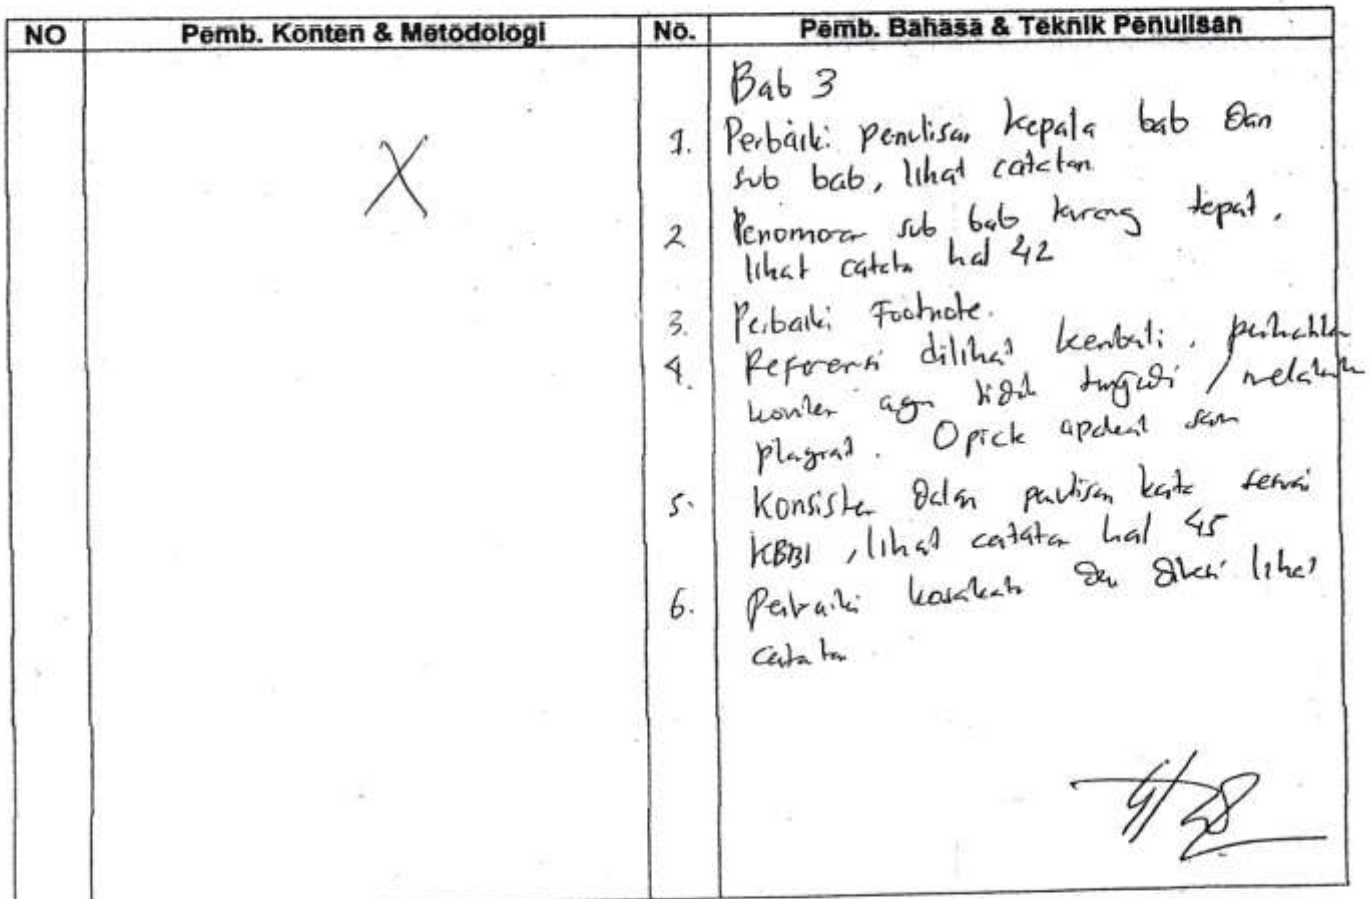 NO Pemb. Konten & Metodologi No. Pemb. Bahasa & Teknik Penulisan
Bab 3
X
1. Perbaiki penulisan kepala bab dan
sub bab, lihat catatan
2 Penomoran sub bab kurang tepat,
lihat catatan hal 42
3. Perbaiki Footnote.
4. Referensi dilihat kembali, perhatikan
konten agar tidak / melakukan
plagiat. Opick
5. Konsisten dalam penulisan kata sesuai
KBBI, lihat catatan hal 45
6. Perbaiki kosakata dan lihat
catatan